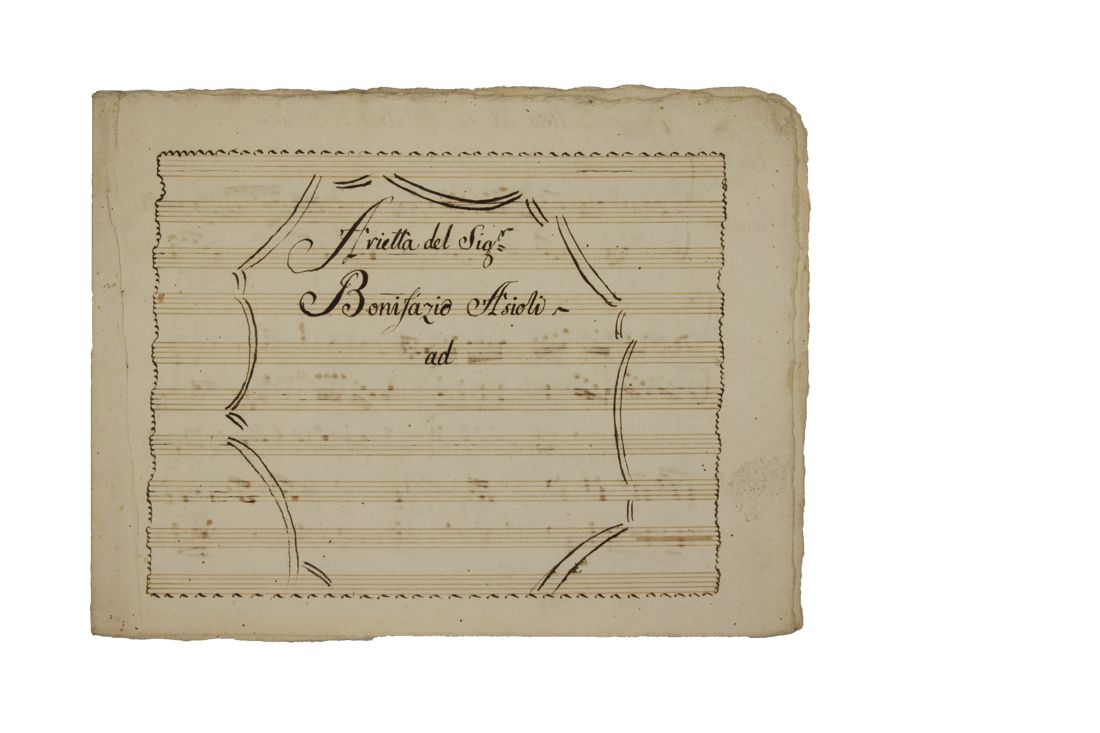 Arietta del Sig.r
Bonifazio Asioli
ad